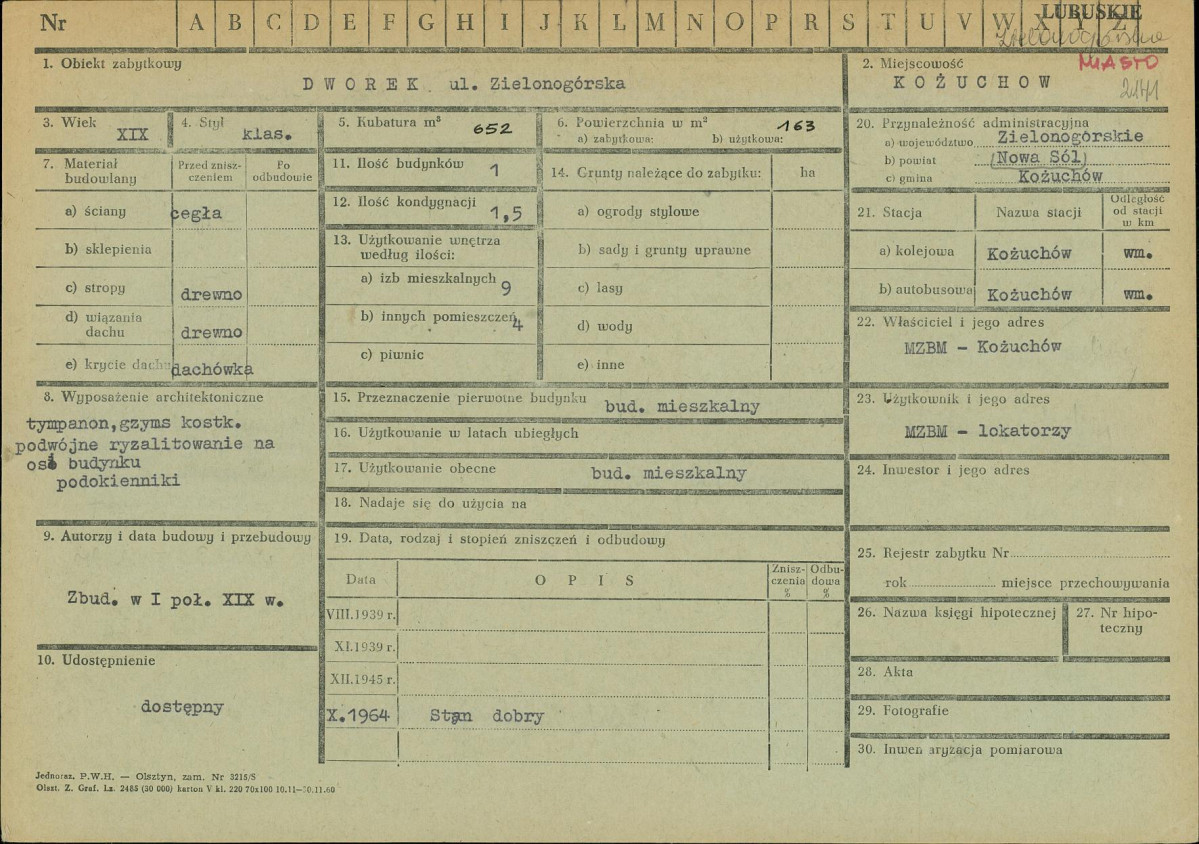 Nr A B C D E F G H I J K L M N O P R S T U V W X Y Z
LUBUSKIE
Zielonogórskie
1. Obiekt zabytkowy
DWOREK ul. Zielonogórska
2. Miejscowość
MIASTO
KOŻUCHOW
2141
3. Wiek
XIX
4. Styl
klas.
5. Kubatura m³
652
6. Powierzchnia w m²
163
a) zabytkowa: b) użytkowa:
20. Przynależność administracyjna
a) województwo Zielonogórskie
b) powiat (Nowa Sól)
c) gmina Kożuchów
7. Materiał budowlany
Przed znisz-
czeniem
Po
odbudowie
a) ściany cegła
b) sklepienia
c) stropy drewno
d) wiązania
dachu drewno
e) krycie dachu dachówka
11. Ilość budynków 1
12. Ilość kondygnacji 1,5
13. Użytkowanie wnętrza
według ilości:
a) izb mieszkalnych 9
b) innych pomieszczeń 4
c) piwnic
14. Grunty należące do zabytku: ha
a) ogrody stylowe
b) sady i grunty uprawne
c) lasy
d) wody
e) inne
21. Stacja Nazwa stacji
Odległość
od stacji
w km
a) kolejowa Kożuchów wm.
b) autobusowa Kożuchów wm.
22. Właściciel i jego adres
MZBM - Kożuchów
8. Wyposażenie architektoniczne
tympanon,gzyms kostk.
podwójne ryzalitowanie na
osi budynku
podokienniki
15. Przeznaczenie pierwotne budynku bud. mieszkalny
16. Użytkowanie w latach ubiegłych
17. Użytkowanie obecne bud. mieszkalny
18. Nadaje się do użycia na
23. Użytkownik i jego adres
MZBM - lokatorzy
24. Inwestor i jego adres
9. Autorzy i data budowy i przebudowy
Zbud. w I poł. XIX w.
10. Udostępnienie
dostępny
19. Data, rodzaj i stopień zniszczeń i odbudowy
Data OPIS
Znisz-
czenia
%
Odbu-
dowa
%
VIII.1939 r.
XI.1939 r.
XII.1945 r.
X.1964 Stan dobry
25. Rejestr zabytku Nr
rok miejsce przechowywania
26. Nazwa księgi hipotecznej
27. Nr hipo-
teczny
28. Akta
29. Fotografie
30. Inwentaryzacja pomiarowa
Jednoraz. P.W.H. — Olsztyn, zam. Nr 3215/S
Olszt. Z. Graf. Lz. 2485 (30 000) karton V kl. 220 70x100 10.11—30.11.60